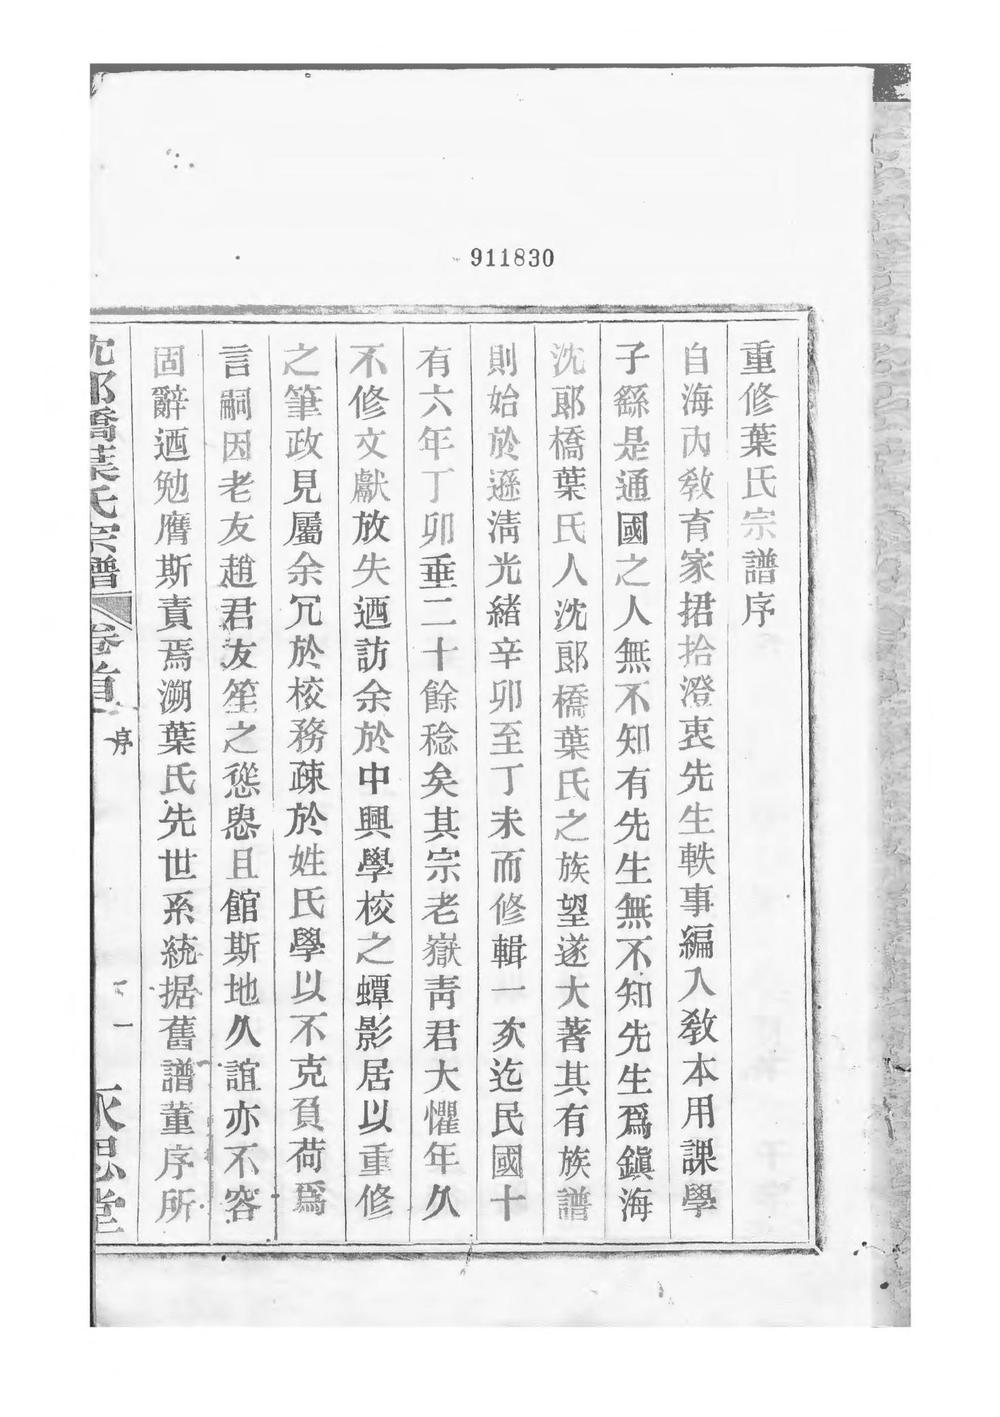 911830
重修葉氏宗譜序
自海內敎育家捃拾澄衷先生軼事編入敎本用課學
子繇是通國之人無不知有先生無不知先生爲鎭海
沈郎橋葉氏人沈郎橋葉氏之族望遂大著其有族譜
則始於遜淸光緒辛卯至丁未而修輯一次迄民國十
有六年丁卯垂二十餘稔矣其宗老嶽靑君大懼年久
不修文獻放失迺訪余於中興學校之蟫影居以重修
之筆政見屬余冗於校務疎於姓氏學以不克負荷爲
言嗣因老友趙君友笙之慫恿且館斯地久誼亦不容
固辭迺勉膺斯責焉溯葉氏先世系統据舊譜董序所
沈郎橋葉氏宗譜 卷首 序 一 永思堂